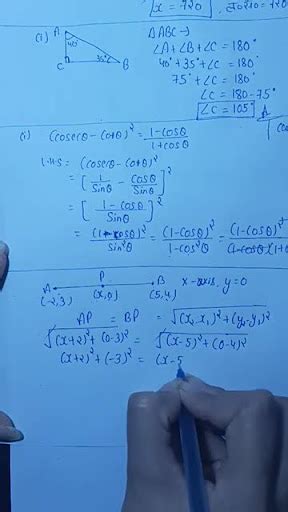 x = 720
(i) A
40°
35°
C
B
ΔABC →
∠A+∠B+∠C = 180°
40°+35°+∠C = 180°
75°+∠C = 180°
∠C = 180-75°
∠C = 105°
(i) (cosecθ - cotθ)² = 1-cosθ / 1+cosθ
L.H.S = (cosecθ - cotθ)²
= [1/Sinθ - Cosθ/Sinθ]²
= [1-Cosθ/Sinθ]²
= (1-cosθ)²/Sin²θ = (1-Cosθ)²/1-cos²θ = (1-Cosθ)²
A P B x-axis, y=0
(-2,3) (x,0) (5,4)
AP = BP = √(x₂-x₁)²+(y₂-y₁)²
√(x+2)²+(0-3)² = √(x-5)²+(0-4)²
(x+2)²+(-3)² = (x-5